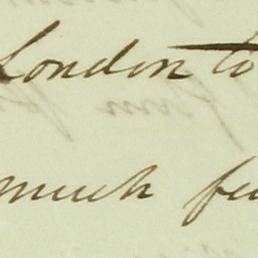 London to
much